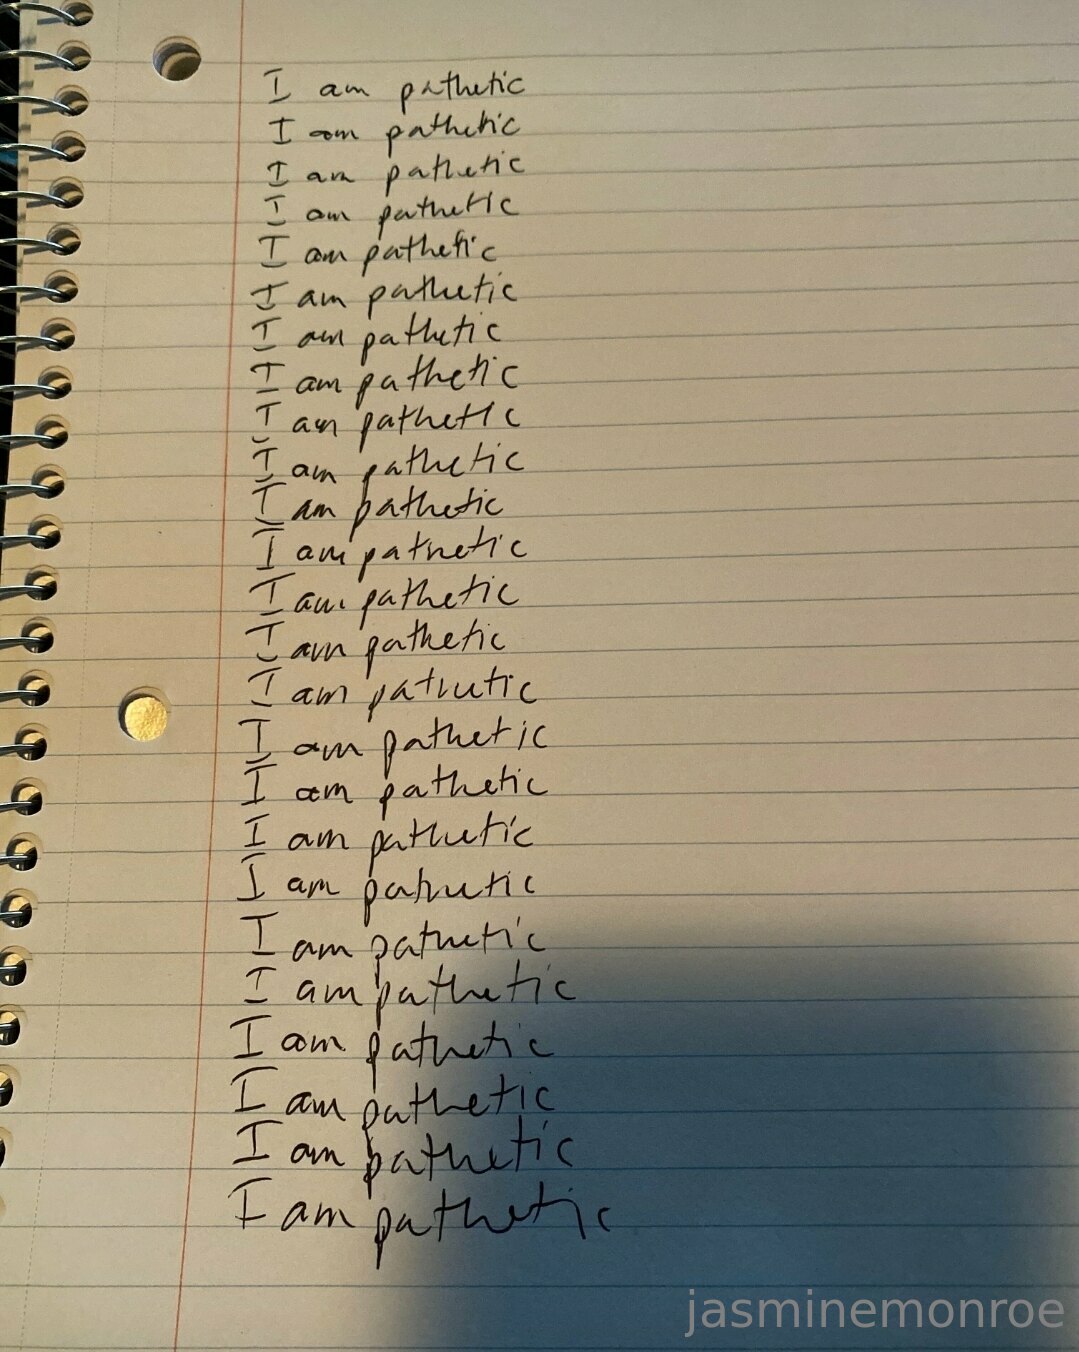 I am pathetic
I am pathetic
I am pathetic
I am pathetic
I am pathetic
I am pathetic
I am pathetic
I am pathetic
I am pathetic
I am pathetic
I am pathetic
I am pathetic
I am pathetic
I am pathetic
I am pathetic
I am pathetic
I am pathetic
I am pathetic
I am pathetic
I am pathetic
I am pathetic
I am pathetic
I am pathetic
I am pathetic
I am pathetic
jasminemonroe